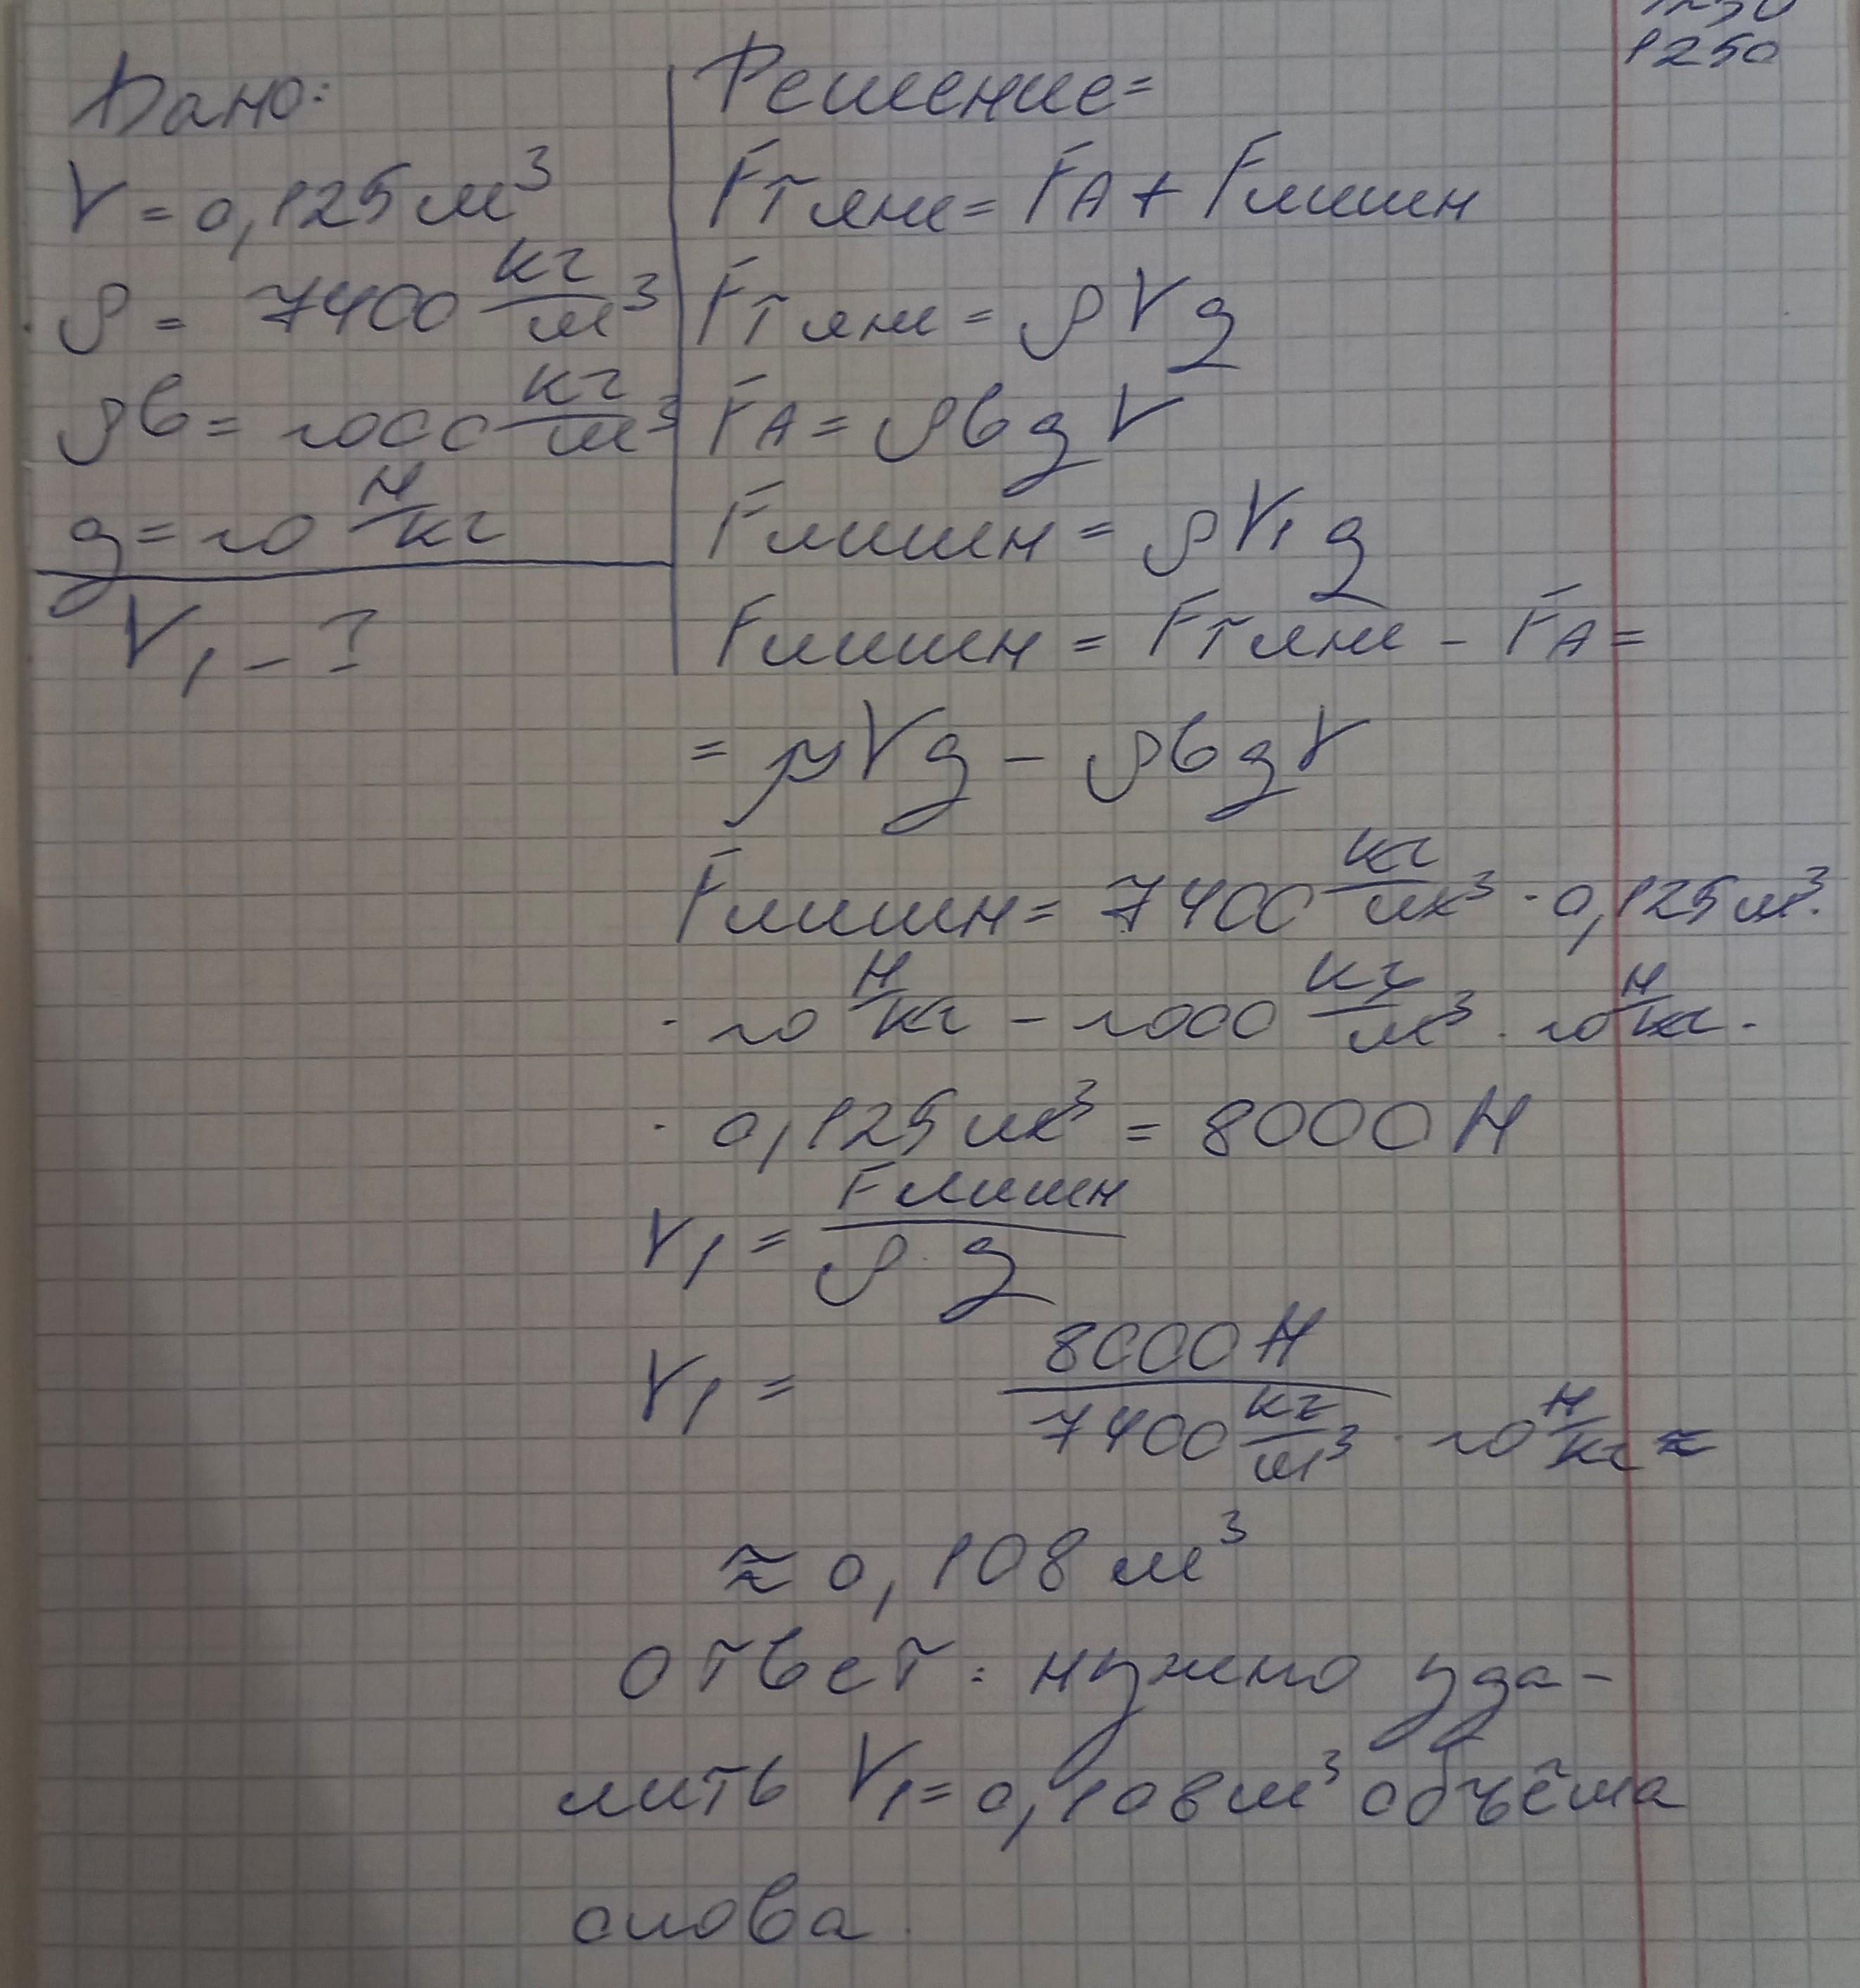 1250
Дано:
V = 0,125 м³
ρ = 7400 кг/м³
ρв = 1000 кг/м³
g = 10 Н/кг
V₁ - ?
Решение:
Fтяж = FА + Fлишн
Fтяж = ρVg
FА = ρв g V
Fлишн = ρV₁g
Fлишн = Fтяж - FА =
= ρVg - ρв g V
Fлишн = 7400 кг/м³ · 0,125 м³ ·
· 10 Н/кг - 1000 кг/м³ · 10 Н/кг ·
· 0,125 м³ = 8000 Н
V₁ = Fлишн / ρ · g
V₁ = 8000 Н / 7400 кг/м³ · 10 Н/кг ≈
≈ 0,108 м³
Ответ: нужно уда-
лить V₁ = 0,108 м³ объёма
олова.